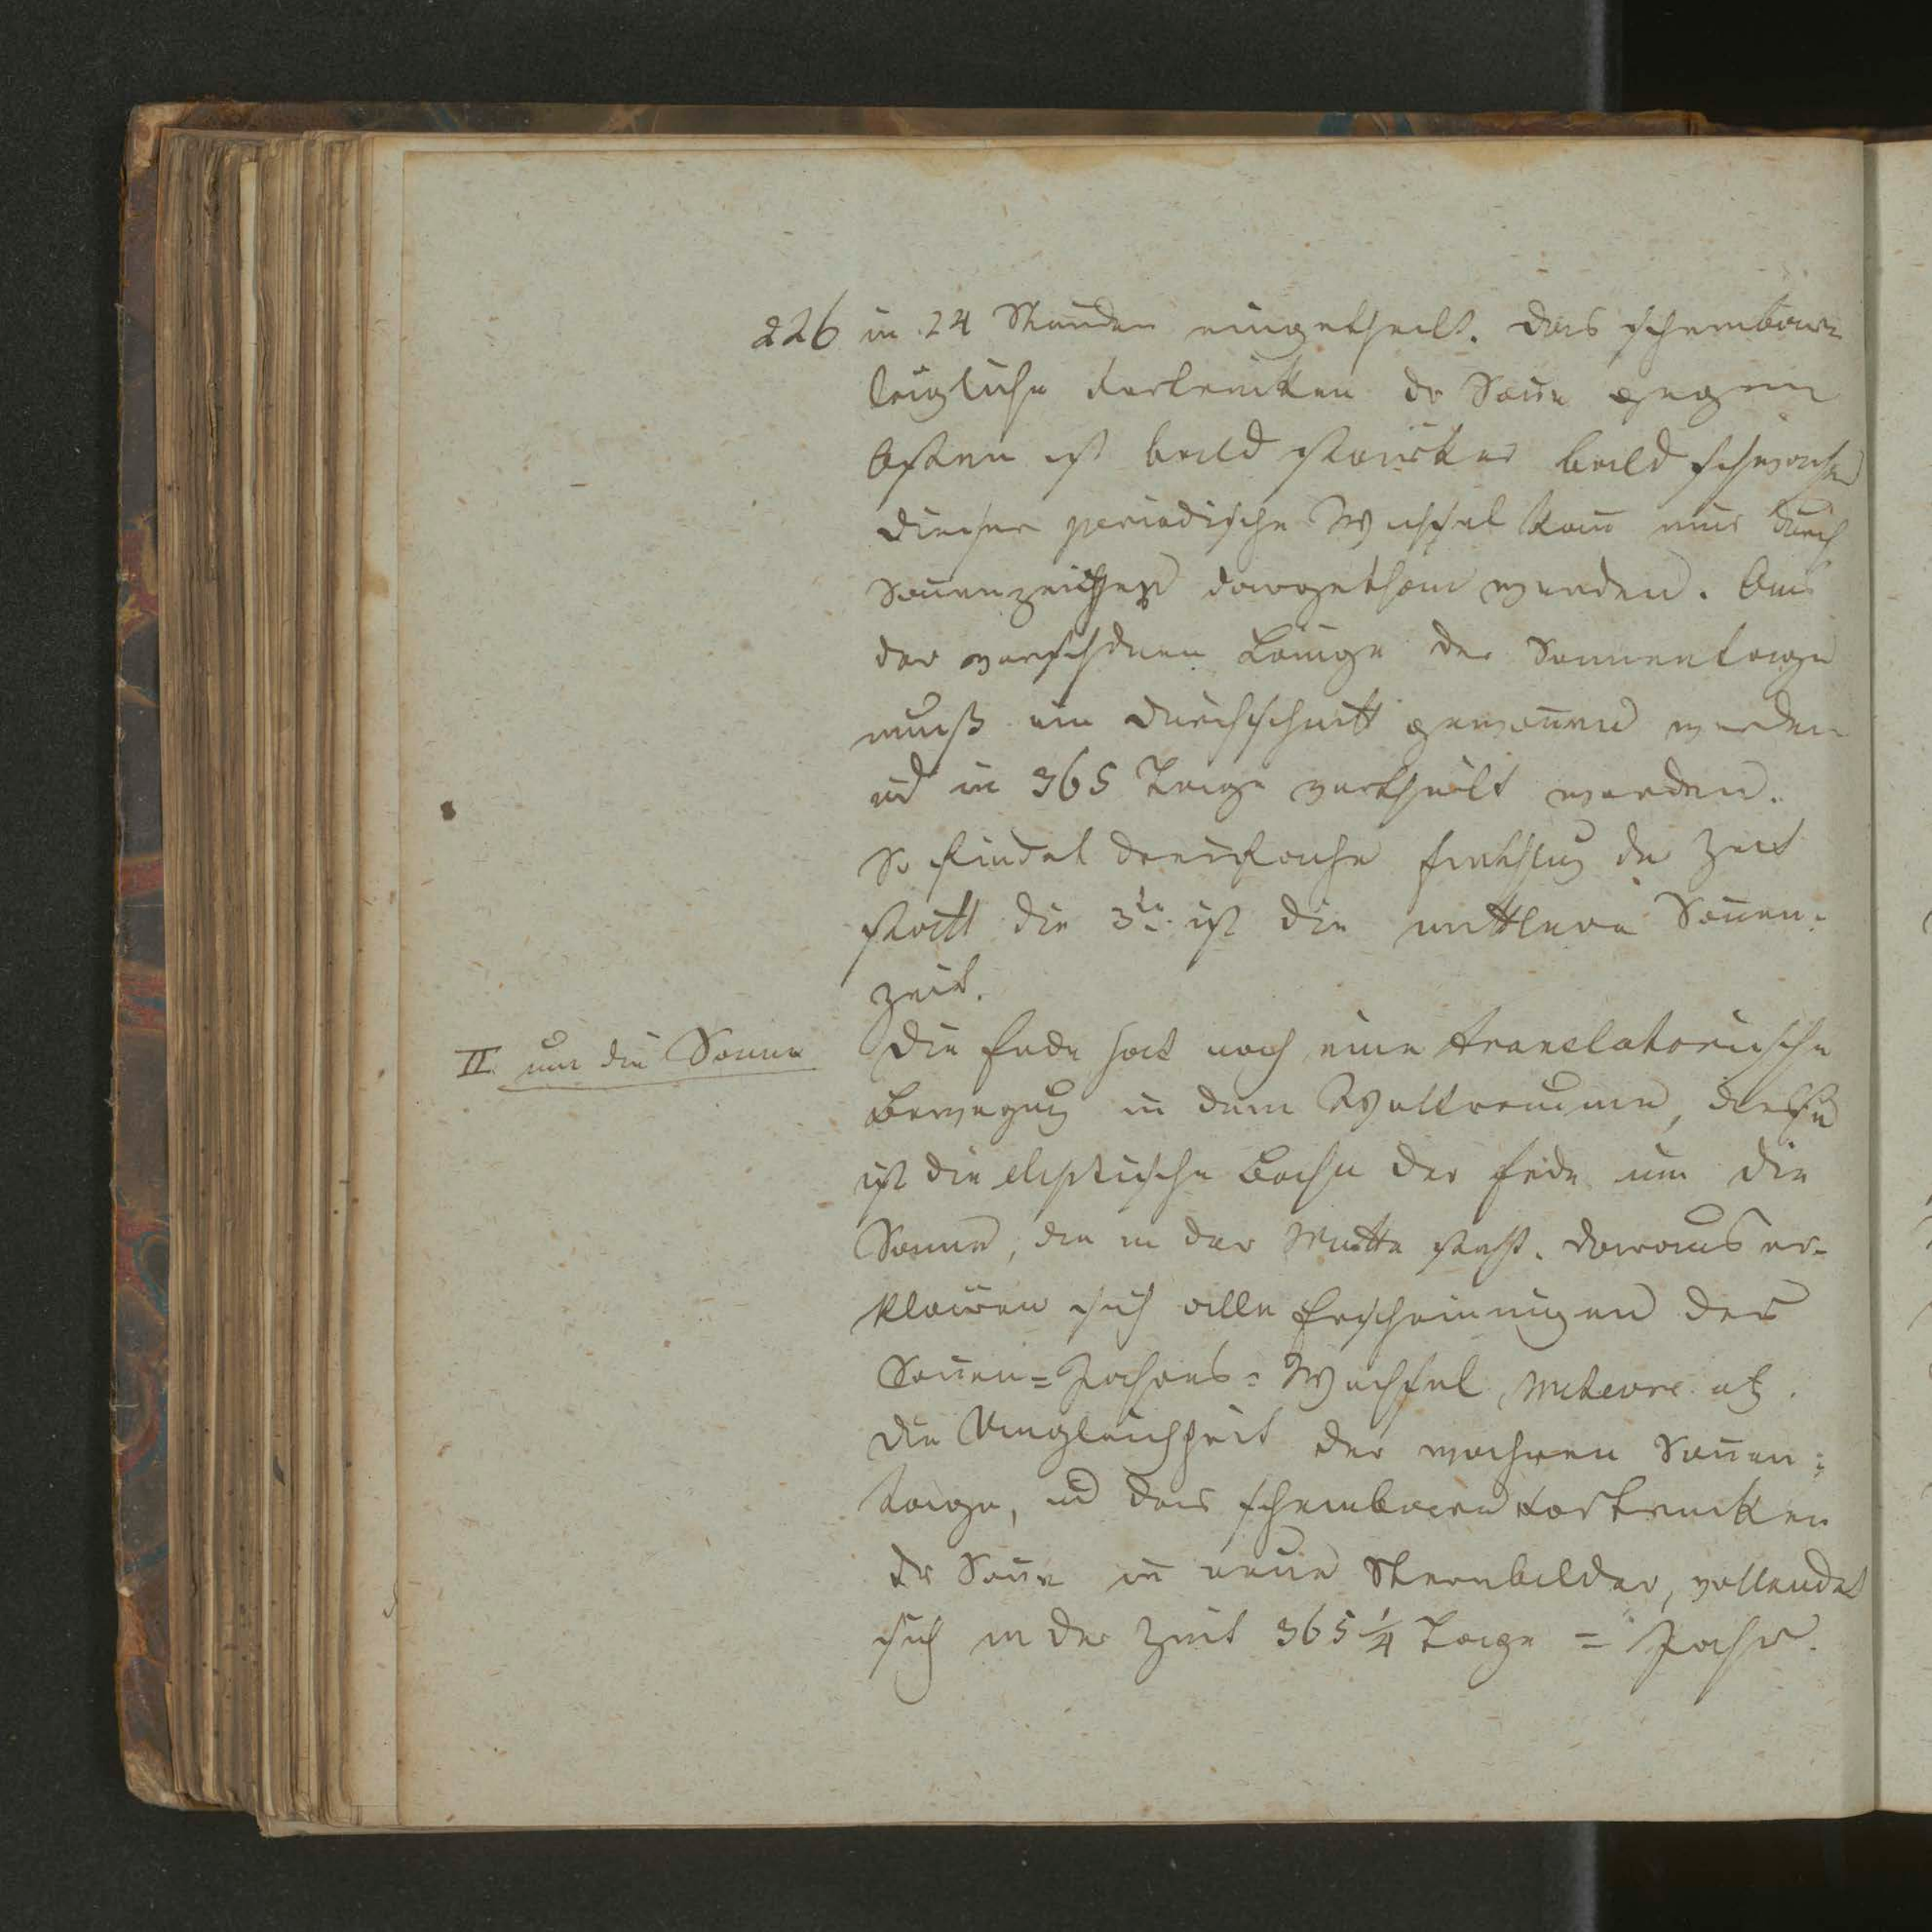 226 in 24 Stunden eingetheilt. Das scheinbare
tägliche Fortrücken dr Soñe gegen
Osten ist bald stärker bald schwächer
dieser periodische Wechsel kañ nur durch
Soñenzeichen dargethan werden. Aus
der verschdnen Länge der Sonnentage
muß ein Durchschnitt genom̃en werden
ud in 365 Tage vertheilt werden.
So findet dreifache Eintheilug der Zeit
statt die 3te ist die mittlere Soñen-
zeit.
II. um die Sonne
Die Erde hat noch eine translatorische
Bewegug in dem Weltraume, diese
ist die eliptische Bahn der Erde um die
Sonne, die in der Mitte steht. Daraus er-
klären sich alle Erscheinungen des
Soñen=Jahres=Wechsel, Meteore etz.
Die Ungleichheit der wahren Soñen-
tage, ud das scheinbare Fortrucken
dr Soñe in neue Sternbilder, vollendet
sich in der Zeit 365 1/4 Tage = Jahr.